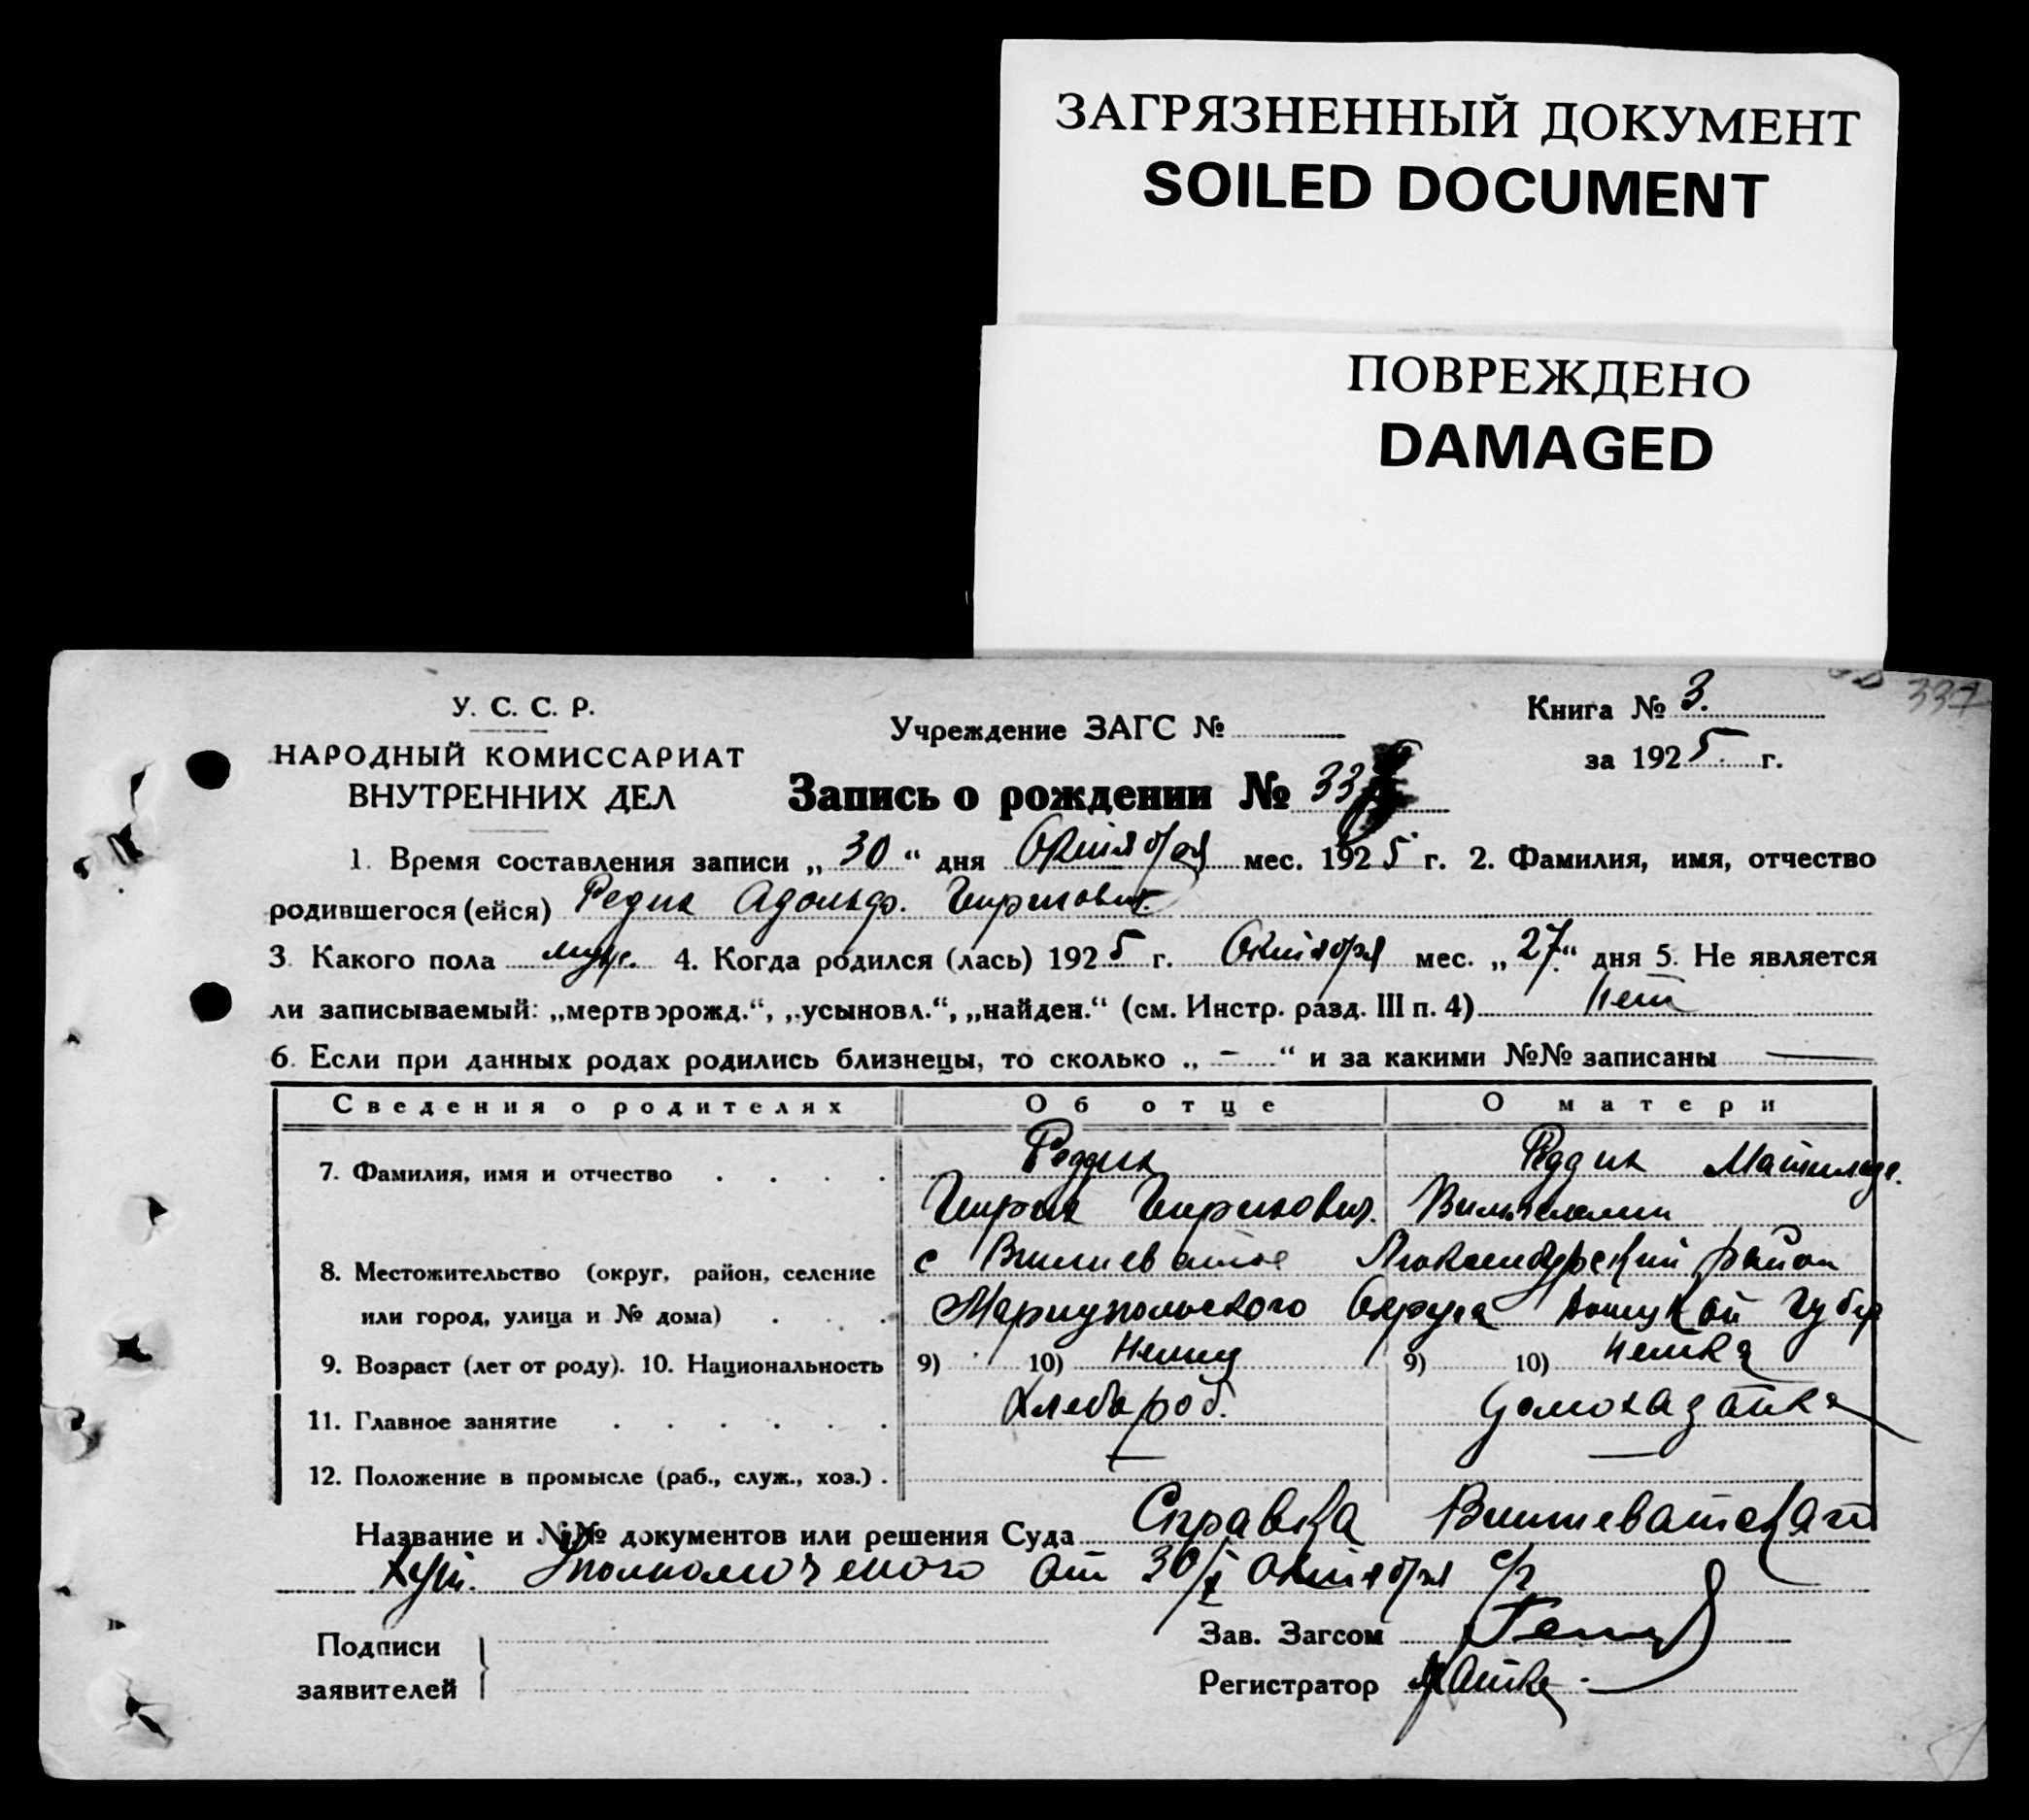 ЗАГРЯЗНЕННЫЙ ДОКУМЕНТ
SOILED DOCUMENT
ПОВРЕЖДЕНО
DAMAGED
337
У. С. С. Р.
НАРОДНЫЙ КОМИССАРИАТ
ВНУТРЕННИХ ДЕЛ
Учреждение ЗАГС №
Книга № 3.
за 1925 г.
Запись о рождении № 33
1. Время составления записи „30“ дня Октября мес. 1925 г. 2. Фамилия, имя, отчество
родившегося (ейся) Редик Адольф. Гирихович
3. Какого пола муж. 4. Когда родился (лась) 1925 г. Октября мес. „27“ дня 5. Не является
ли записываемый: „мертворожд.“, „усыновл.“, „найден.“ (см. Инстр. разд. III п. 4) Нет
6. Если при данных родах родились близнецы, то сколько „-“ и за какими №№ записаны —
Сведения о родителях Об отце О матери
7. Фамилия, имя и отчество . . . . Реддик Реддик Матильде.
Вильгельмин
8. Местожительство (округ, район, селение с Вишневатое район
или город, улица и № дома) . . . Мариупольского Округа Донецкой Губер
9. Возраст (лет от роду). 10. Национальность 9) 10) Немец 9) 10) Немка
11. Главное занятие . . . . . . Хлебороб. домохазайка
12. Положение в промысле (раб., служ., хоз.) . — —
Название и №№ документов или решения Суда Справка Вишневатского
Хут. Уполномоченого от 30/X Октября с/г
Подписи
заявителей
Зав. Загсом
Регистратор